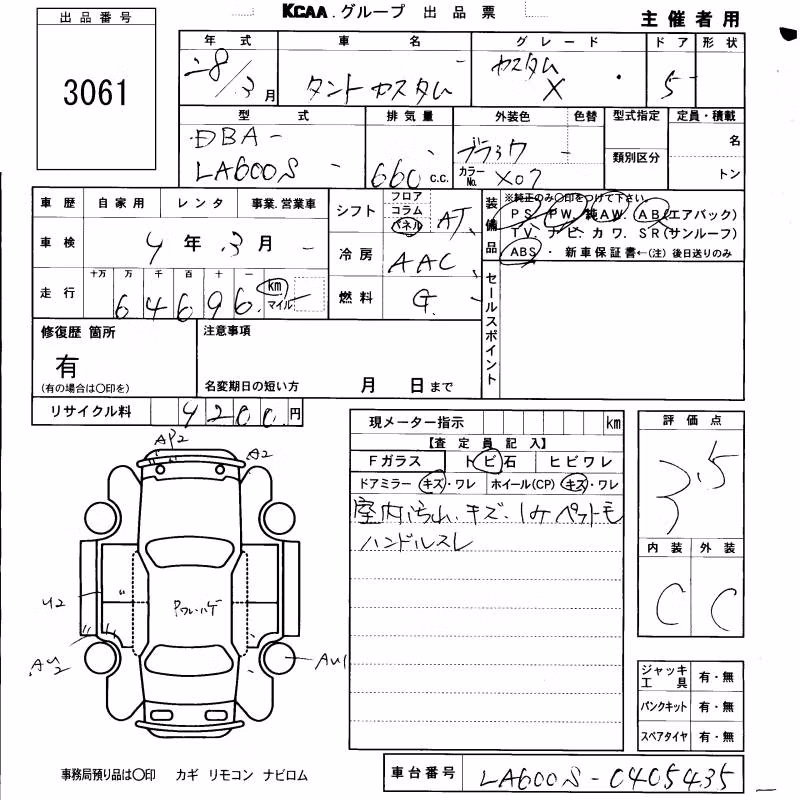 KCAA.グループ 出品票
主催者用
出品番号
3061
年式 車名 グレード ドア 形状
28/3月 タントカスタム カスタムX 5
型式 排気量 外装色 色替 型式指定 定員・積載
DBA- 名
類別区分
LA600S 660 c.c. ブラウン カラーNo. X07 トン
車歴 自家用 レンタ 事業.営業車
車検 4年.3月
走行 十万 万 千 百 十 一
64696. km マイル
シフト フロア コラム パネル AT
冷房 AAC
燃料 G.
装備品 ※純正のみ○印をつけて下さい。
PS. PW. 純AW. AB(エアバック)
TV. ナビ. カワ. SR(サンルーフ)
ABS・新車保証書←(注)後日送りのみ
セールスポイント
修復歴 箇所 注意事項
有
(有の場合は○印を) 名変期日の短い方 月 日まで
リサイクル料 9200.円
現メーター指示 km
【査定員記入】
Fガラス トビ石 ヒビワレ
ドアミラー キズ・ワレ ホイール(CP) キズ・ワレ
室内汚れ、キズ、シミ ペット毛
ハンドルスレ
評価点
3.5
内装 外装
C C
AP2
A2
U2
AU2
AU1
ジャッキ工具 有・無
パンクキット 有・無
スペアタイヤ 有・無
事務局預り品は○印 カギ リモコン ナビロム
車台番号 LA600S-0405435